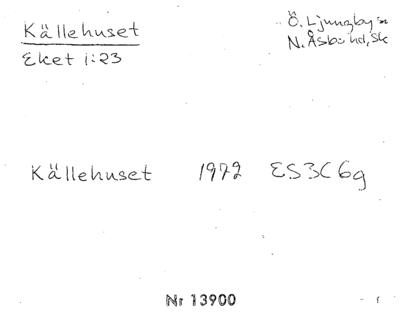 Källehuset
Eket 1:23
Ö. Ljungby sn
N. Åsbo hd, Sk
Källehuset 1972 ES3C6g
Nr 13900